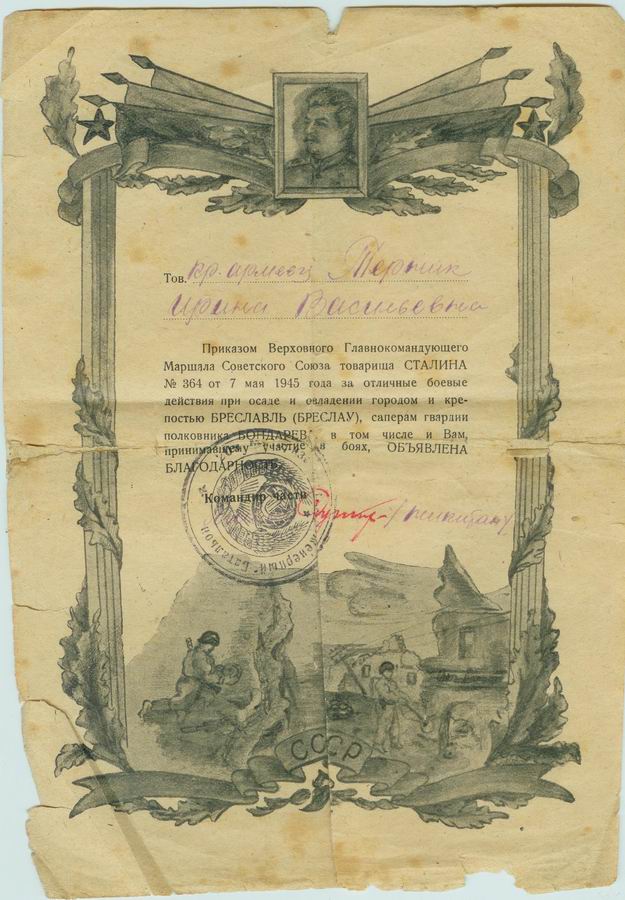 Тов. кр. армеец Терник
Ирина Васильевна
Приказом Верховного Главнокомандующего
Маршала Советского Союза товарища СТАЛИНА
№ 364 от 7 мая 1945 года за отличные боевые
действия при осаде и овладении городом и кре-
постью БРЕСЛАВЛЬ (БРЕСЛАУ), саперам гвардии
полковника БОНДАРЕВ, в том числе и Вам,
принимавшему участие в боях, ОБЪЯВЛЕНА
БЛАГОДАРНОСТЬ.
Командир части
женерный Батальон
СССР